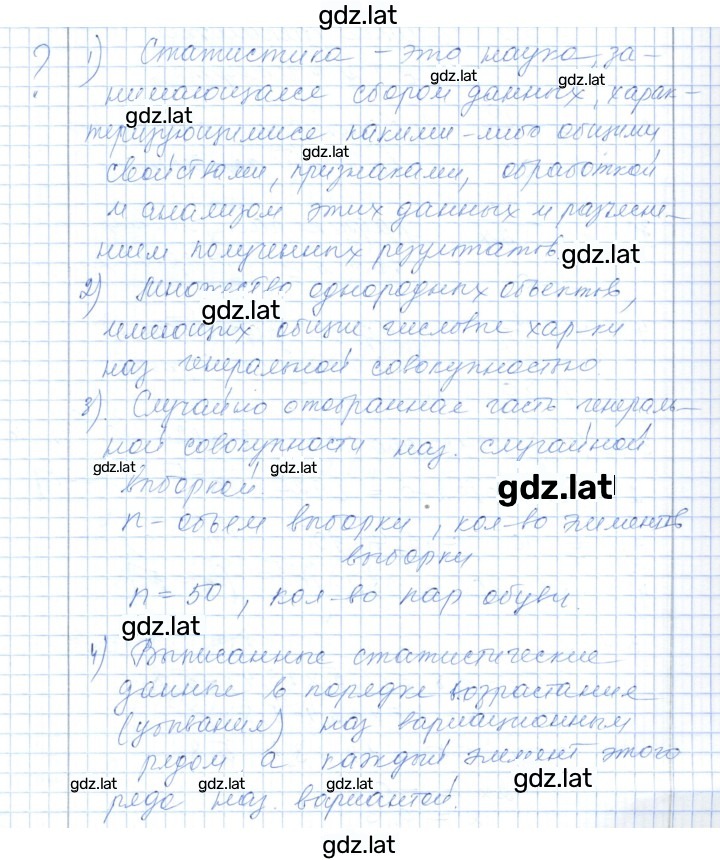 gdz.lat
? 1) Статистика – это наука, за-
gdz.lat gdz.lat
нимающаяся сбором данных, харак-
gdz.lat
теризующимися какими-либо общими
gdz.lat
свойствами, признаками, обработкой
и анализом этих данных и разъясне-
нием полученных результатов.
gdz.lat
2) Множество однородных объектов,
gdz.lat
имеющих общие числовые хар-ки
наз генеральной совокупностью
3). Случайно отобранная часть генераль-
ной совокупности наз. случайной
gdz.lat gdz.lat
выборкой.
gdz.lat
n – объем выборки, кол-во элементов
выборки
n = 50, кол-во пар обуви.
gdz.lat
4) Выписанные статистические
данные в порядке возрастание
(убывания) наз вариационным
рядом а каждый элемент этого
gdz.lat gdz.lat gdz.lat gdz.lat
ряда наз. вариантой.
gdz.lat